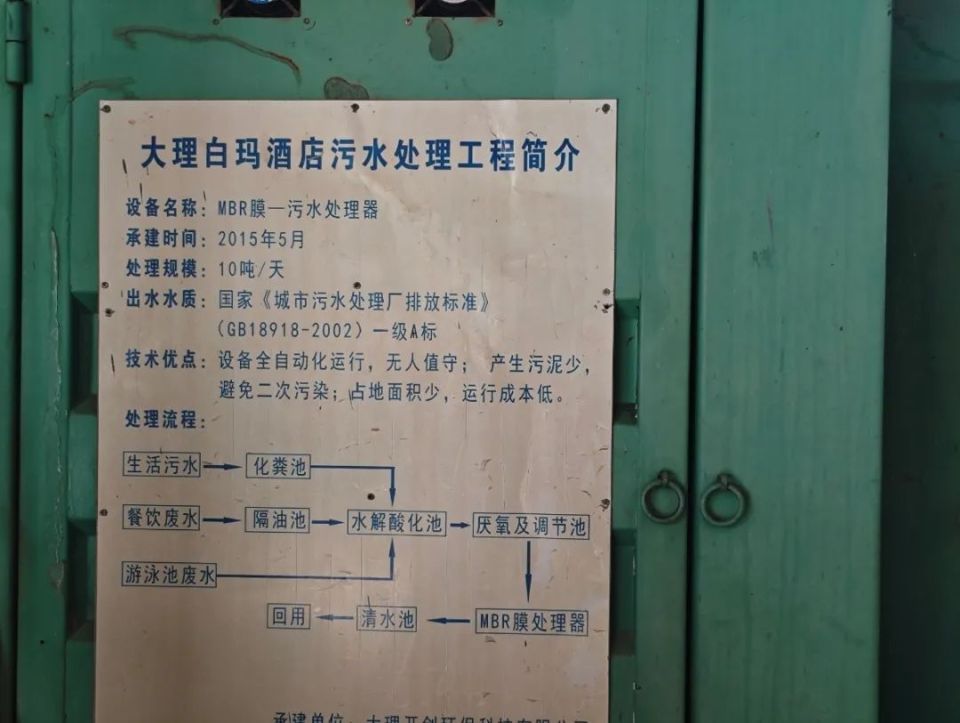 大理白玛酒店污水处理工程简介
设备名称：MBR膜一污水处理器
承建时间：2015年5月
处理规模：10吨/天
出水水质：国家《城市污水处理厂排放标准》
（GB18918-2002）一级A标
技术优点：设备全自动化运行，无人值守； 产生污泥少，
避免二次污染；占地面积少，运行成本低。
处理流程：
生活污水 化粪池
餐饮废水 隔油池 水解酸化池 厌氧及调节池
游泳池废水
回用 清水池 MBR膜处理器
承建单位：大理开创环保科技有限公司